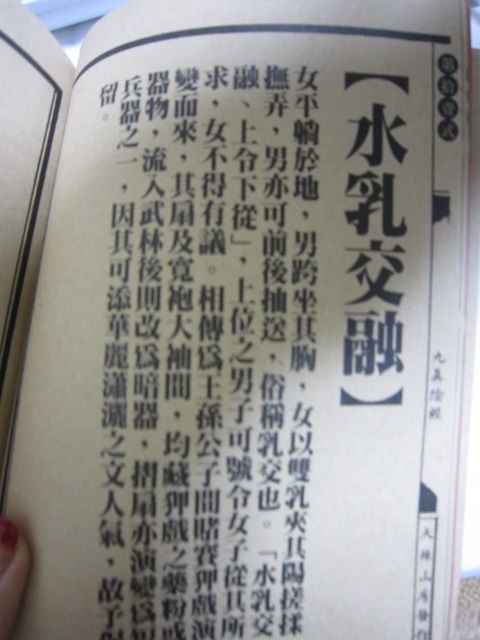 【水乳交融】
女平躺於地，男跨坐其胸，女以雙乳夾其陽搓揉
撫弄，男亦可前後抽送，俗稱乳交也。「水乳交
融、上令下從」，上位之男子可號令女子從其所
求，女不得有議。相傳爲王孫公子間賭賽狎戲演
變而來，其扇及寬袍大袖間，均藏狎戲之藥粉或
器物，流入武林後則改爲暗器，摺扇亦演變爲
兵器之一，因其可添華麗瀟灑之文人氣，故予
留。
九真陰經